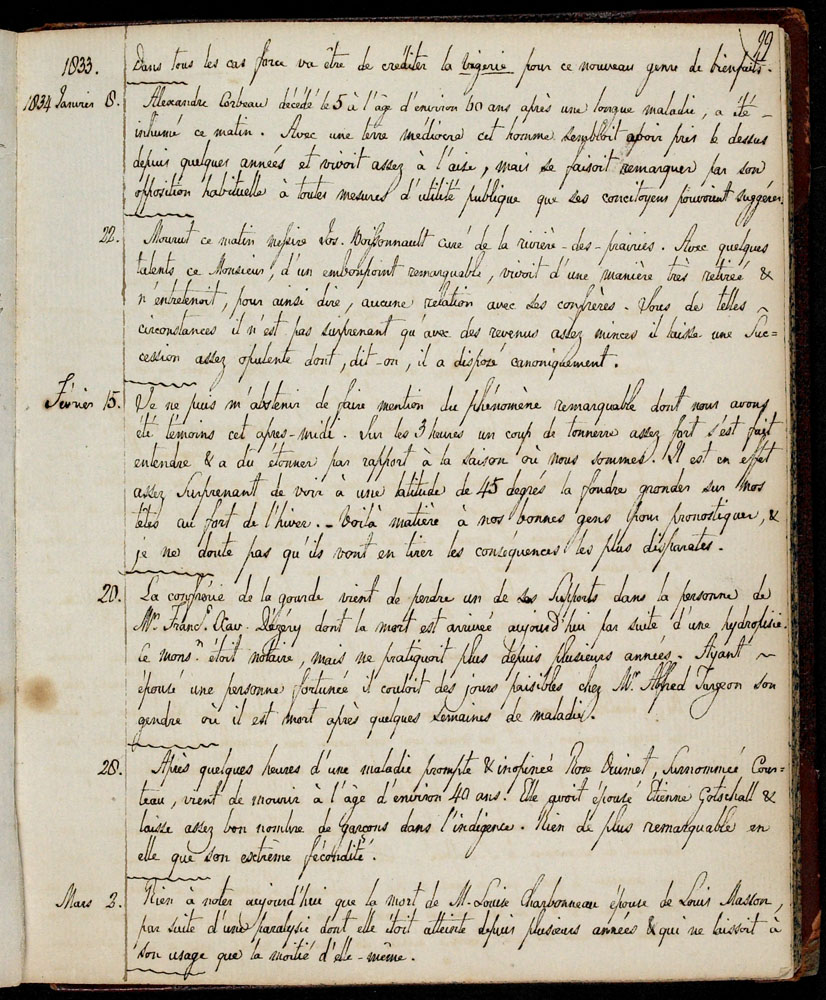 29
1833. Dans tous les cas force va être de créditer la vigerie pour ce nouveau genre de bienfaits.
1834 Janvier 8. Alexandre Corbeau décédé le 5 à l'âge d'environ 60 ans après une longue maladie, a été
inhumé ce matin. Avec une terre médiocre cet homme sembloit avoir pris le dessus
depuis quelques années et vivoit assez à l'aise, mais se faisoit remarquer par son
opposition habituelle à toutes mesures d'utilité publique que ses concitoyens pouvoient suggérer.
22. Mourut ce matin messire Jos. Boissonnault curé de la rivière-des-prairies. Avec quelques
talents ce Monsieur, d'un embonpoint remarquable, vivoit d'une manière très retireé &
n'entretenoit, pour ainsi dire, aucune relation avec ses confrères. Sous de telles
circonstances il n'est pas surprenant qu'avec des revenus assez minces il laisse une Suc=
cession assez opulente dont, dit-on, il a disposé canoniquement.
Février 15. Je ne puis m'abstenir de faire mention du phénomène remarquable dont nous avons
été témoins cet après-midi. Sur les 3 heures un coup de tonnerre assez fort s'est fait
entendre & a du étonner par rapport à la saison où nous sommes. Il est en effet
assez surprenant de voir à une latitude de 45 degrés la foudre gronder sur nos
têtes au fort de l'hiver. - Voilà matière à nos bonnes gens pour pronostiquer, &
je ne doute pas qu'ils vont en tirer les conséquences les plus disparates.
20. La confrérie de la gourde vient de perdre un de ses supports dans la personne de
Mr. Franc.s Xav. Dézéry dont la mort est arrivée aujourd'hui par suite d'une hydropisie.
Ce mons.r étoit notaire, mais ne pratiquoit plus depuis plusieurs années. Ayant
épousé une personne fortunée il couloit des jours paisibles chez Mr. Alfred Turgeon son
gendre où il est mort après quelques semaines de maladie.
28. Après quelques heures d'une maladie prompte & inopineé Rose Ouimet, surnommeé Cour=
teau, vient de mourir à l'âge d'environ 40 ans. Elle avoit épousé Etienne Gotschall &
laisse assez bon nombre de garçons dans l'indigence. Rien de plus remarquable en
elle que son extrême fécondité.
Mars 2. Rien à noter aujourd'hui que la mort de M. Louise Charbonneau épouse de Louis Masson,
par suite d'une paralysie dont elle étoit atteinte depuis plusieurs années & qui ne laissoit à
son usage que la moitié d'elle-même.